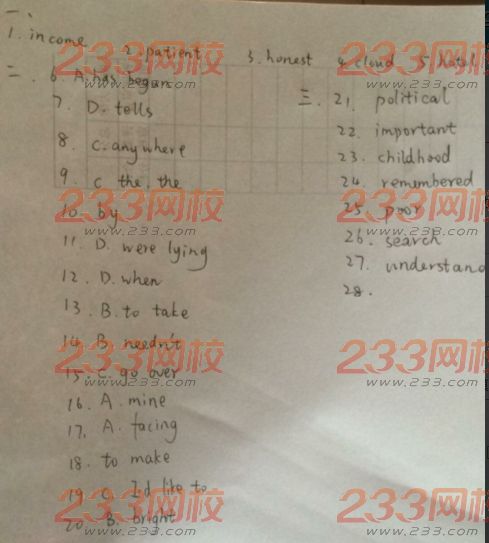 一、
1. income 2. patient 3. honest 4. cloud 5. hotel
二. 6. A. has begun
7. D. tells
8. C. anywhere
9. C the, the
10. by
11. D. were lying
12. D. when
13. B. to take
14. B. needn't
15. C. go over
16. A. mine
17. A. facing
18. to make
19. C. I'd like to
20. B. bright
三. 21. political
22. important
23. childhood
24. remembered
25. poor
26. search
27. understand
28.
233网校
www.233.com
233网校
www.233.com
233网校
www.233.com
233网校
www.233.com
233网校
www.233.com
233网校
www.233.com
233网校
www.233.com
233网校
www.233.com